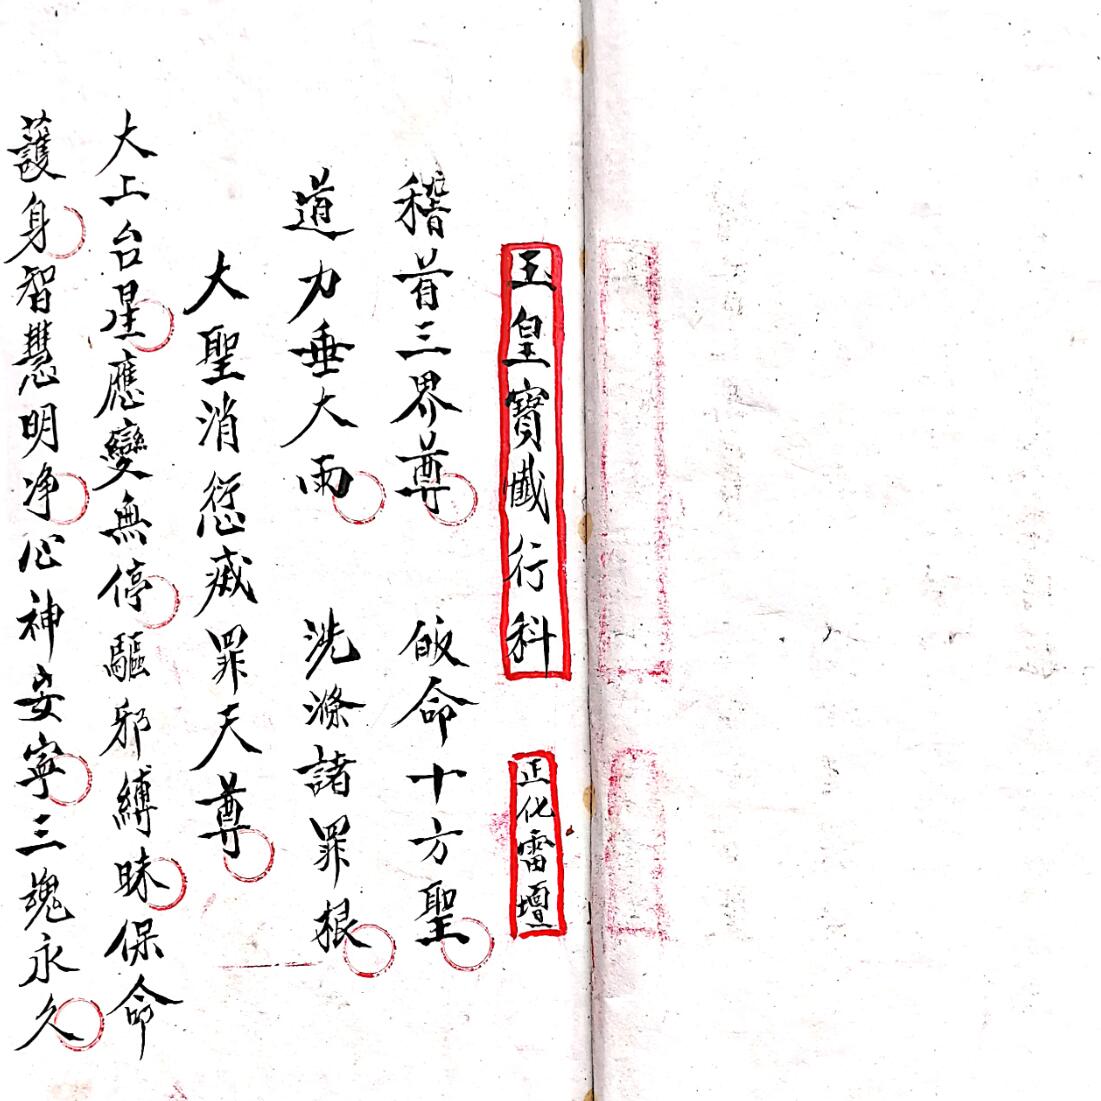 玉皇寶懴行科
正化雷壇
稽首三界尊 皈命十方聖
道力垂大雨 洗滌諸罪根
大聖消愆滅罪天尊
大上台星應變無停驅邪縛昧保命
護身智慧明净心神安寧三魂永久